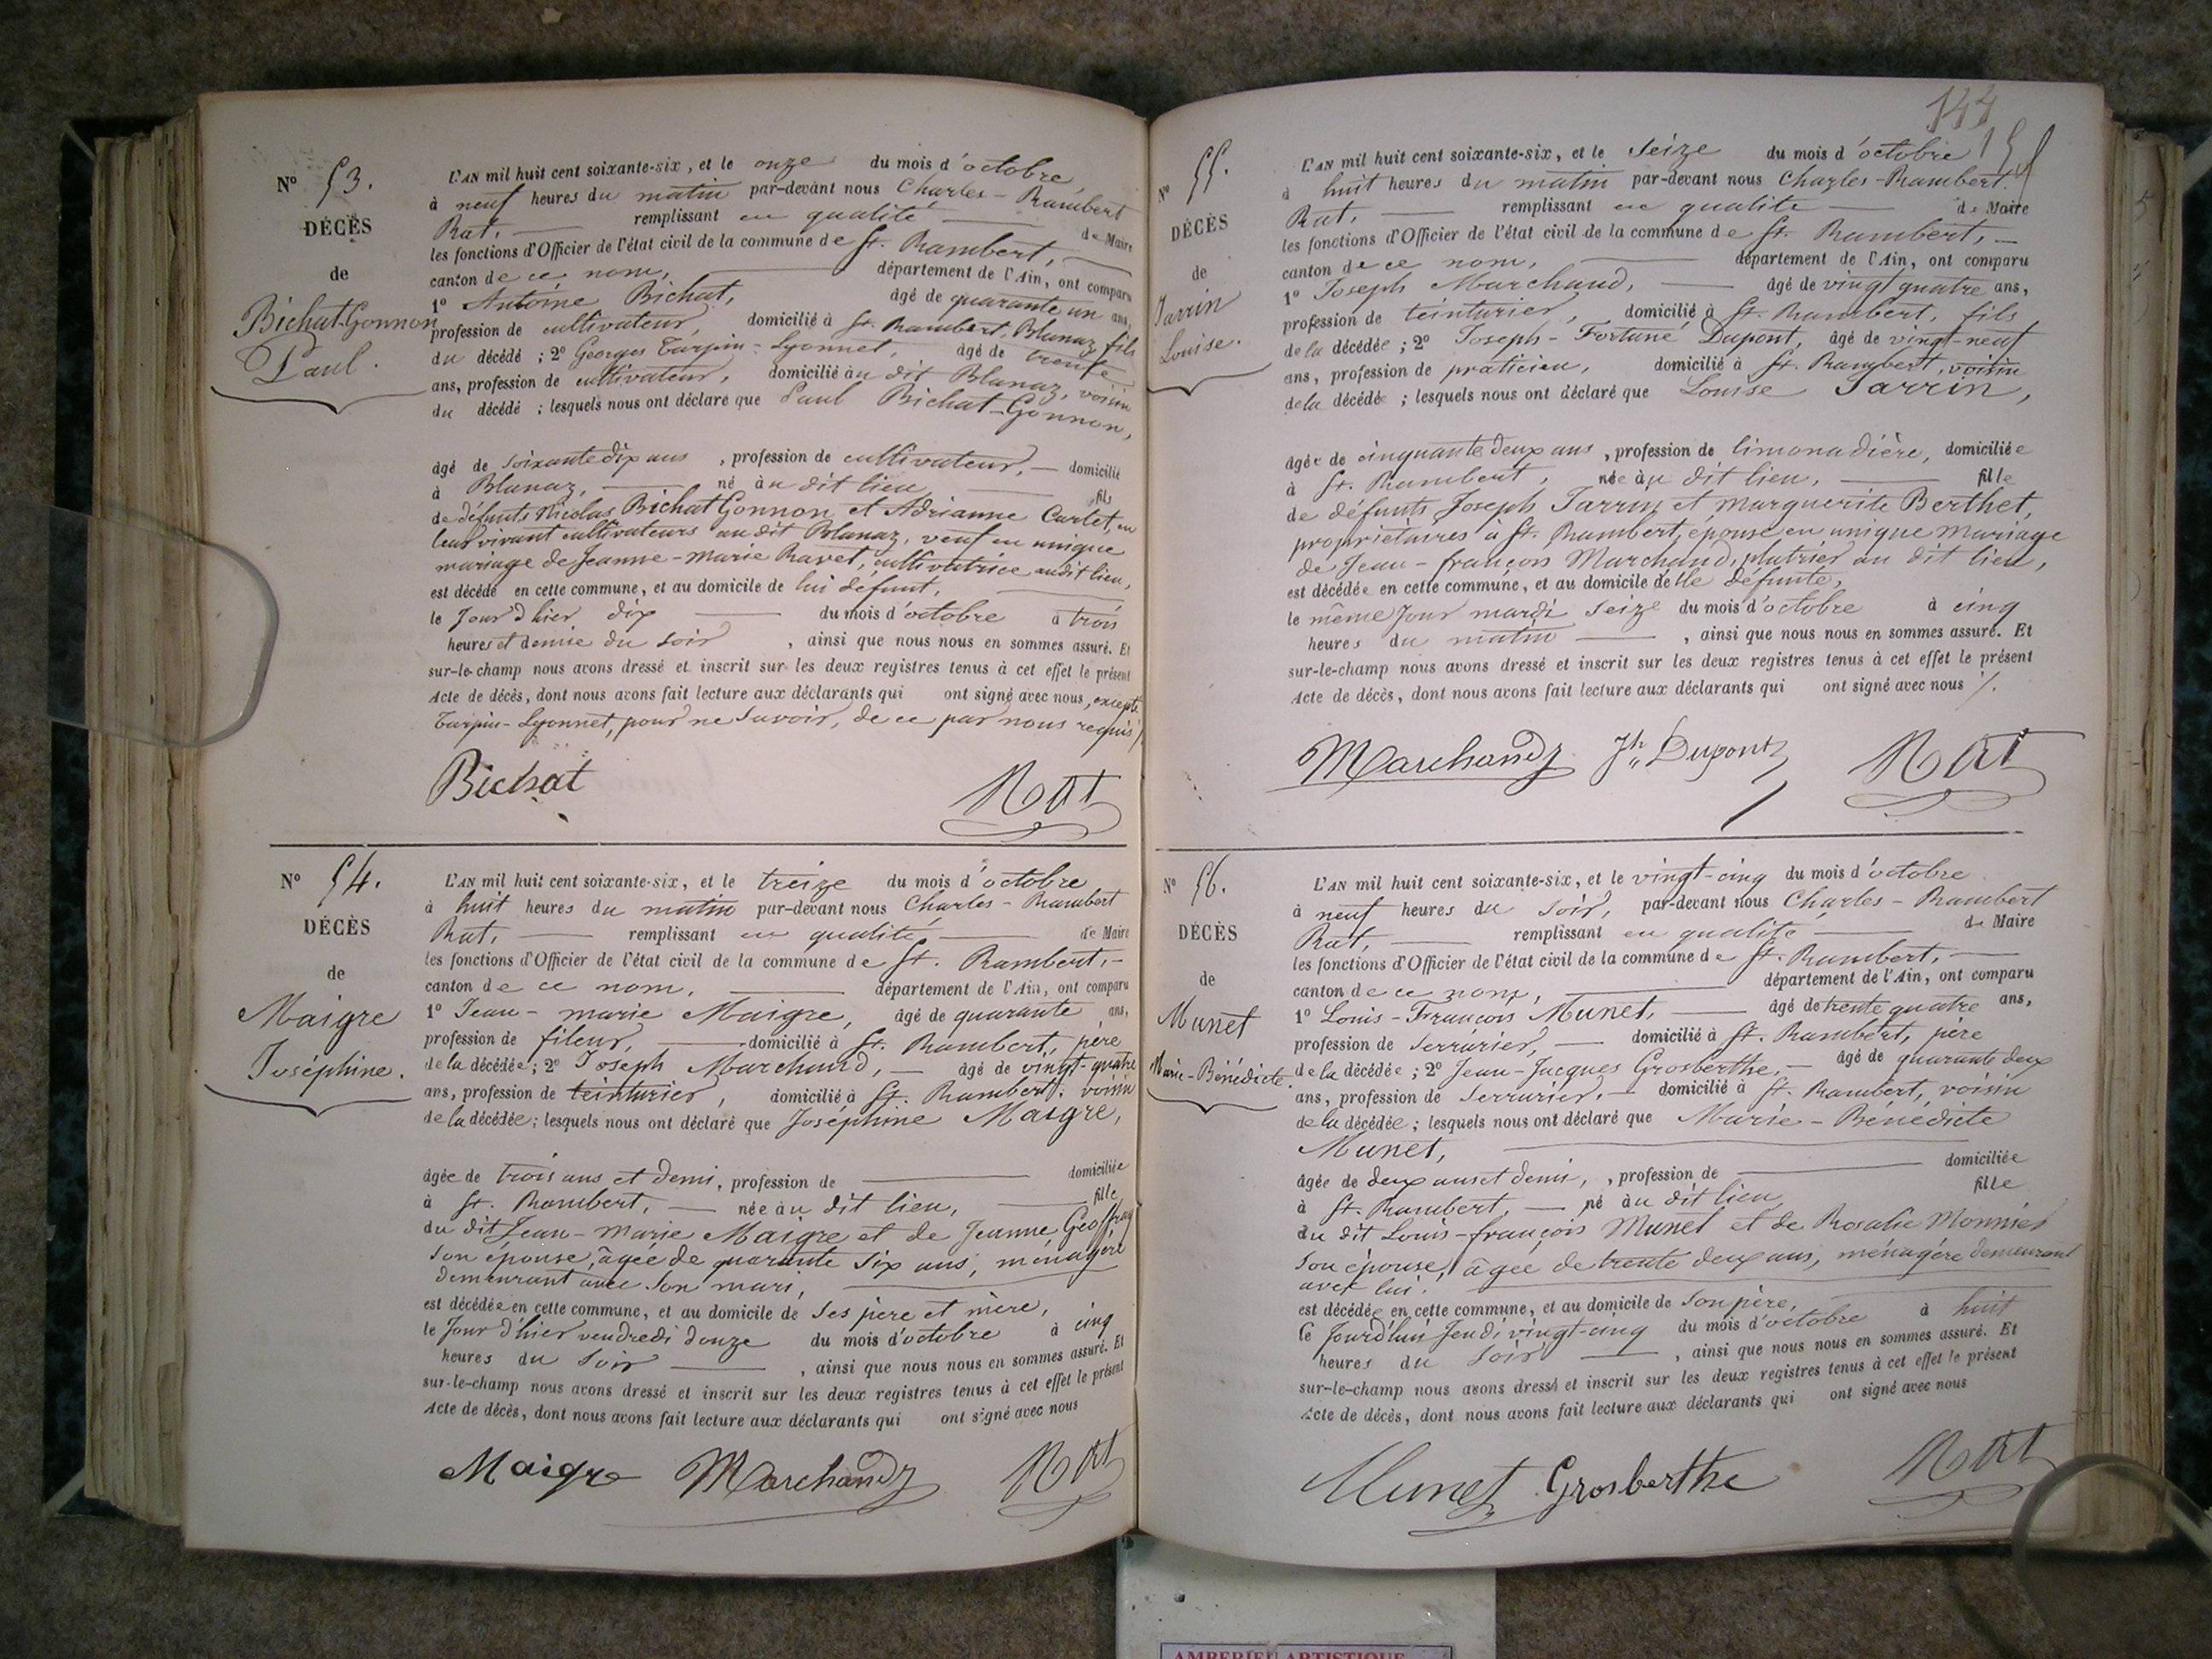 N° 53.
DÉCÈS
de
Bichat-Gonnon
Paul.
L'AN mil huit cent soixante-six, et le onze du mois d'octobre,
à neuf heures du matin par-devant nous Charles-Rambert
Rat, remplissant en qualité de Maire
les fonctions d'Officier de l'état civil de la commune de St. Rambert,
canton de ce nom, département de l'Ain, ont comparu
1° Antoine Bichat, âgé de quarante un ans,
profession de cultivateur, domicilié à St. Rambert, Blanaz, fils
du décédé ; 2° Georges Turpin-Lyonnet, âgé de trente
ans, profession de cultivateur, domicilié au dit Blanaz, voisin
du décédé ; lesquels nous ont déclaré que Paul Bichat-Gonnon,
âgé de soixante dix ans, profession de cultivateur, domicilié
à Blanaz, né au dit lieu fils
de défunts Nicolas Bichat Gonnon et Adrianne Curtet, en
leur vivant cultivateurs au dit Blanaz, veuf en unique
mariage de Jeanne-Marie Ravet, cultivatrice audit lieu,
est décédé en cette commune, et au domicile de lui défunt,
le Jour d'hier dix du mois d'octobre à trois
heures et demie du soir, ainsi que nous nous en sommes assuré. Et
sur-le-champ nous avons dressé et inscrit sur les deux registres tenus à cet effet le présent
Acte de décès, dont nous avons fait lecture aux déclarants qui ont signé avec nous, excepté
Turpin-Lyonnet, pour ne savoir, de ce par nous requis/.
Bichat Rat
N° 54.
DÉCÈS
de
Maigre
Joséphine.
L'AN mil huit cent soixante-six, et le treize du mois d'octobre
à huit heures du matin par-devant nous Charles-Rambert
Rat, remplissant en qualité de Maire
les fonctions d'Officier de l'état civil de la commune de St. Rambert,
canton de ce nom, département de l'Ain, ont comparu
1° Jean-marie Maigre, âgé de quarante ans,
profession de fileur, domicilié à St. Rambert, père
de la décédée ; 2° Joseph Marchand, âgé de vingt-quatre
ans, profession de teinturier, domicilié à St. Rambert, voisin
de la décédée ; lesquels nous ont déclaré que Joséphine Maigre,
âgée de trois ans et demi, profession de domiciliée
à St. Rambert, née au dit lieu, fille
du dit Jean-marie Maigre et de Jeanne Geoffray
son épouse, âgée de quarante six ans, ménagère
demeurant avec son mari,
est décédée en cette commune, et au domicile de ses père et mère,
le Jour d'hier vendredi douze du mois d'octobre à cinq
heures du soir, ainsi que nous nous en sommes assuré. Et
sur-le-champ nous avons dressé et inscrit sur les deux registres tenus à cet effet le présent
Acte de décès, dont nous avons fait lecture aux déclarants qui ont signé avec nous
Maigre Marchand Rat
144
N° 55.
DÉCÈS
de
Jarrin
Louise.
L'AN mil huit cent soixante-six, et le Seize du mois d'octobre
à huit heures du matin par-devant nous Charles-Rambert
Rat, remplissant en qualité de Maire
les fonctions d'Officier de l'état civil de la commune de St. Rambert,
canton de ce nom, département de l'Ain, ont comparu
1° Joseph Marchand, âgé de vingt quatre ans,
profession de teinturier, domicilié à St. Rambert, fils
de la décédée ; 2° Joseph-Fortuné Dupont, âgé de vingt-neuf
ans, profession de praticien, domicilié à St. Rambert, voisin
de la décédée ; lesquels nous ont déclaré que Louise Jarrin,
âgée de cinquante deux ans, profession de limonadière, domiciliée
à St. Rambert, née au dit lieu, fille
de défunts Joseph Jarrin et Marguerite Berthet,
propriétaires à St. Rambert, épouse en unique mariage
de Jean-françois Marchand, platrier au dit lieu,
est décédée en cette commune, et au domicile d'elle défunte,
le même Jour mardi seize du mois d'octobre à cinq
heures du matin, ainsi que nous nous en sommes assuré. Et
sur-le-champ nous avons dressé et inscrit sur les deux registres tenus à cet effet le présent
Acte de décès, dont nous avons fait lecture aux déclarants qui ont signé avec nous /.
Marchand Jh Dupont Rat
N° 56.
DÉCÈS
de
Munet
Marie-Bénédicte.
L'AN mil huit cent soixante-six, et le vingt-cinq du mois d'octobre
à neuf heures du soir, par-devant nous Charles-Rambert
Rat, remplissant en qualité de Maire
les fonctions d'Officier de l'état civil de la commune de St. Rambert,
canton de ce nom, département de l'Ain, ont comparu
1° Louis-François Munet, âgé de trente quatre ans,
profession de Serrurier, domicilié à St. Rambert, père
de la décédée ; 2° Jean-Jacques Grosberthe, âgé de quarante deux
ans, profession de Serrurier, domicilié à St. Rambert, voisin
de la décédée ; lesquels nous ont déclaré que Marie-Bénédicte
Munet,
âgée de deux ans et demi, profession de domiciliée
à St. Rambert, né au dit lieu fille
du dit Louis-françois Munet et de Rosalie Monnier
son épouse, âgée de trente deux ans, ménagère demeurant
avec lui.
est décédée en cette commune, et au domicile de son père,
le Jourd'hui Jeudi vingt-cinq du mois d'octobre à huit
heures du soir, ainsi que nous nous en sommes assuré. Et
sur-le-champ nous avons dressé et inscrit sur les deux registres tenus à cet effet le présent
Acte de décès, dont nous avons fait lecture aux déclarants qui ont signé avec nous
Munet Grosberthe Rat
AMBERIEU ARTISTIQUE